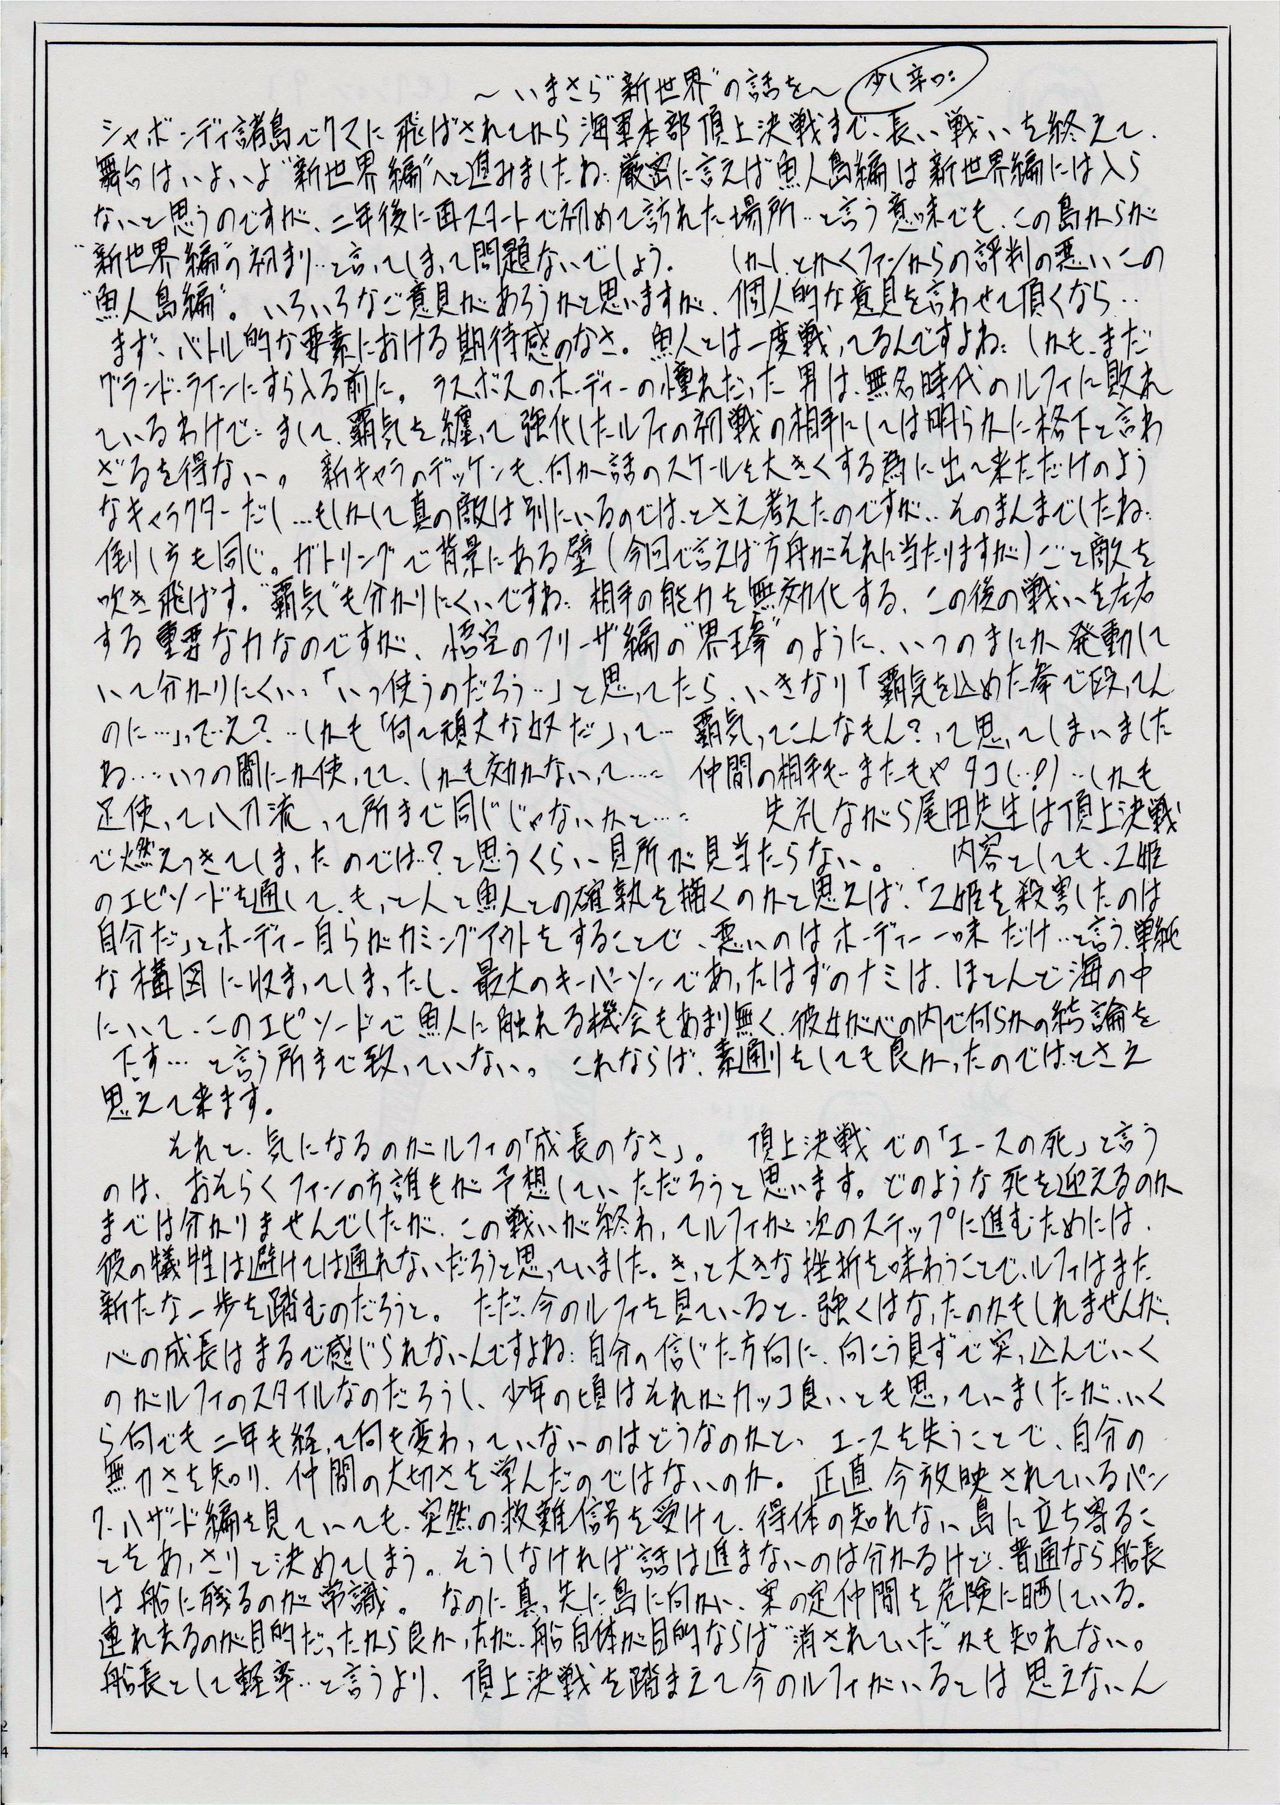 ～いまさら"新世界"の話を～ 少し辛口
シャボンディ諸島でクマに飛ばされてから海軍本部頂上決戦まで、長い戦いを終えて、
舞台はいよいよ"新世界編"へと進みましたね。厳密に言えば魚人島編は新世界編には入ら
ないと思うのですが、二年後に再スタートで初めて訪れた場所…と言う意味でも、この島からが
"新世界編"の初まり…と言ってしまって問題ないでしょう。 しかし、とかくファンからの評判の悪いこの
"魚人島編"。いろいろなご意見があろうかと思いますが、個人的な意見を言わせて頂くなら…
まず、バトル的な要素における期待感のなさ。魚人とは一度戦ってるんですよね… しかも、まだ
グランド・ラインにすら入る前に。 ラスボスのホーディーの憧れだった男は、無名時代のルフィに敗れ
ているわけで… まして、覇気を纏って強化したルフィの初戦の相手にしては明らかに格下と言わ
ざるを得ない。 新キャラのデッケンも、何か話のスケールを大きくする為に出て来ただけのよう
なキャラクターだし…もしかして真の敵は別にいるのでは、とさえ考えたのですが… そのまんまでしたね…
倒し方も同じ。ガトリングで背景にある壁(今回で言えば方舟がそれに当たりますが)ごと敵を
吹き飛ばす。"覇気"も分かりにくいですね… 相手の能力を無効化する、この後の戦いを左右
する重要な力なのですが、悟空のフリーザ編の"界王拳"のように、いつのまにか発動して
いて分かりにくい…「いつ使うのだろう…」と思ってたら、いきなり「覇気を込めた拳で殴ってん
のに…」って…え？…しかも「何て頑丈な奴だ」って… 覇気ってこんなもん？って思ってしまいました
ね…いつの間にか使ってて、しかも効かないって…… 仲間の相手も…またもやタコ(…!)…しかも
足使って八刀流って所まで同じじゃないかと…… 失礼ながら尾田先生は頂上決戦
で燃えつきてしまったのでは…？と思うくらい見所が見当たらない。 内容としても、乙姫
のエピソードを通して、もっと人と魚人との確執を描くのかと思えば、「乙姫を殺害したのは
自分だ」とホーディー自らがカミングアウトをすることで、悪いのはホーディー一味だけ…と言う、単純
な構図に収まってしまったし、最大のキーパーソンであったはずのナミは、ほとんど海の中
にいて、このエピソードで魚人に触れる機会もあまり無く、彼女が心の内で何らかの結論を
下す…と言う所まで致っていない。 これならば、素通りをしても良かったのでは…とさえ
思えて来ます。
それと、気になるのがルフィの「成長のなさ」。 頂上決戦での「エースの死」と言う
のは、おそらくファンの方誰もが予想していただろうと思います。どのような死を迎えるのか
までは分かりませんでしたが、この戦いが終わってルフィが次のステップに進むためには、
彼の犠牲は避けては通れないだろうと思っていました。きっと大きな挫折を味わうことで、ルフィはまた
新たな一歩を踏むのだろうと。 ただ、今のルフィを見ていると、強くはなったのかもしれませんが、
心の成長はまるで感じられないんですよね… 自分の信じた方向に、向こう見ずで突っ込んでいく
のがルフィのスタイルなのだろうし、少年の頃はそれがカッコ良いとも思っていましたが、いく
ら何でも二年も経って何も変わっていないのはどうなのかと、 エースを失うことで、自分の
無力さを知り、仲間の大切さを学んだのではないのか。 正直、今放映されているパン
ク・ハザード編を見ていても、突然の救難信号を受けて、得体の知れない島に立ち寄るこ
とをあっさりと決めてしまう。そうしなければ話は進まないのは分かるけど、普通なら船長
は船に残るのが常識。 なのに真っ先に島に向かい、案の定仲間を危険に晒している。
連れ去るのが目的だったから良かったが、船自体が目的ならば"消されていた"かも知れない。
船長として軽率…と言うより、頂上決戦を踏まえて今のルフィがいるとは思えないん
24